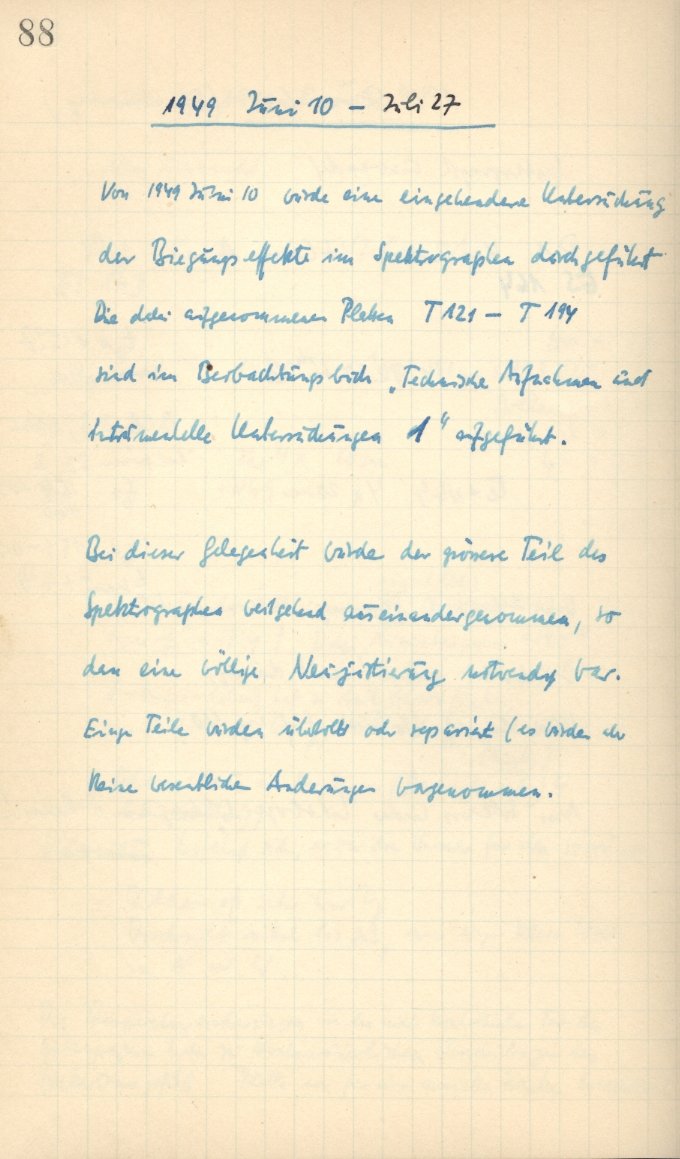 88
1949 Juni 10 – Juli 27
Von 1949 Juni 10 wurde eine eingehendere Untersuchung
der Biegungseffekte im Spektrographen durchgeführt
Die dabei aufgenommenen Platten T 121 – T 194
sind im Beobachtungsbuch „Technische Aufnahmen und
instrumentelle Untersuchungen 1" aufgeführt.
Bei dieser Gelegenheit wurde der grössere Teil des
Spektrographen weitgehend auseinandergenommen, so
dass eine völlige Neujustierung notwendig war.
Einige Teile wurden überholt oder repariert (es wurden aber
keine wesentlichen Änderungen vorgenommen.